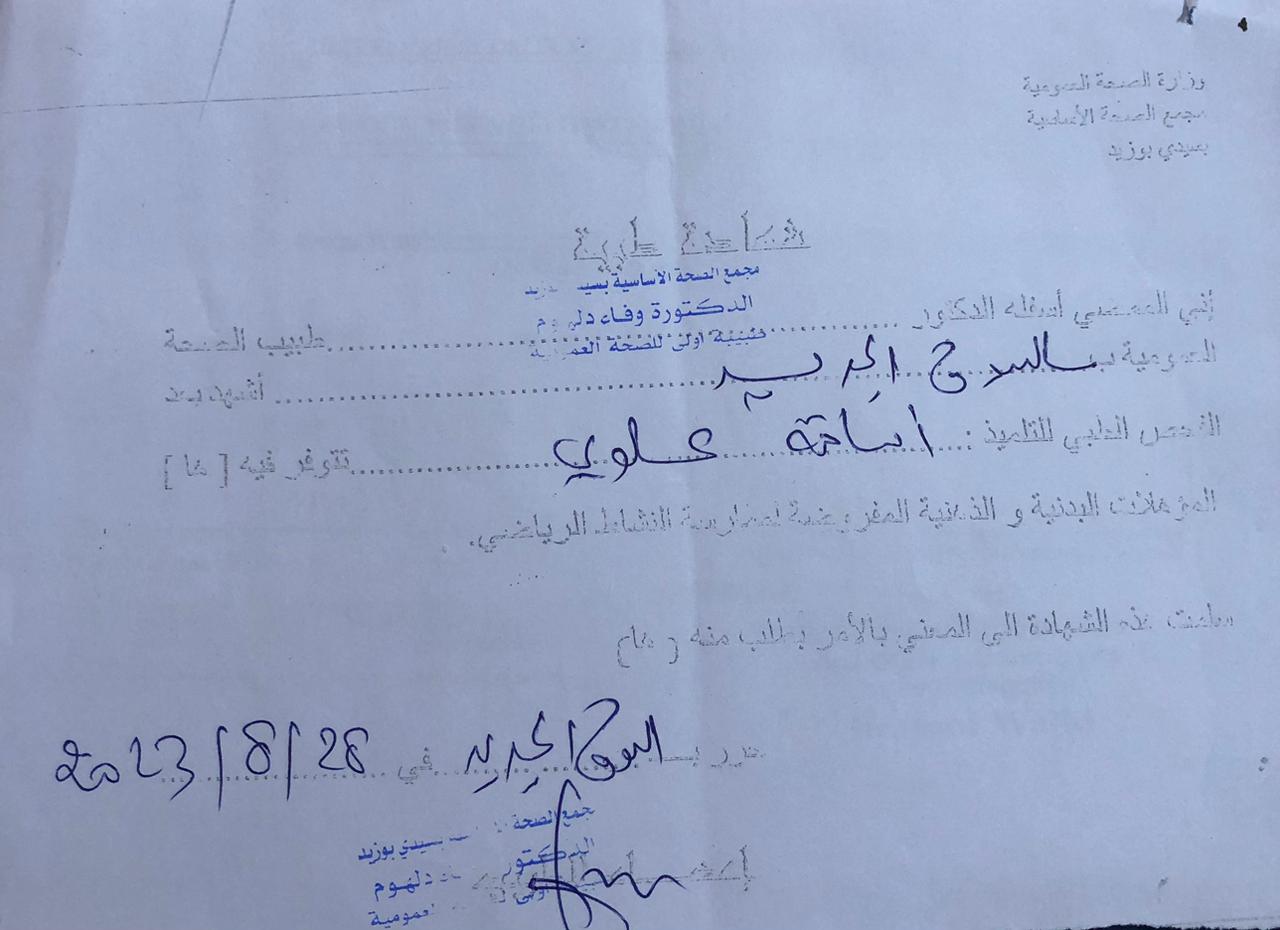 وزارة الصحة العمومية
مجمع الصحة الأساسية
بسيدي بوزيد
شهادة طبية
مجمع الصحة الأساسية بسيدي بوزيد
الدكتورة وفاء دلهوم
طبيبة أولى للصحة العمومية
إني الممضي أسفله الدكتور ........ طبيب الصحة
العمومية بـ السوق الجديد ........ أشهد بعد
الفحص الطبي للتلميذ : أسامة علوي ........ تتوفر فيه [ ها ]
المؤهلات البدنية و الذهنية المفروضة لممارسة النشاط الرياضي.
سلمت هذه الشهادة الى المعني بالأمر بطلب منه ( ها )
حرر بـ السوق الجديد في 2023/8/28
إمضاء
مجمع الصحة سيدي بوزيد
الدكتور دلهوم
أولى العمومية